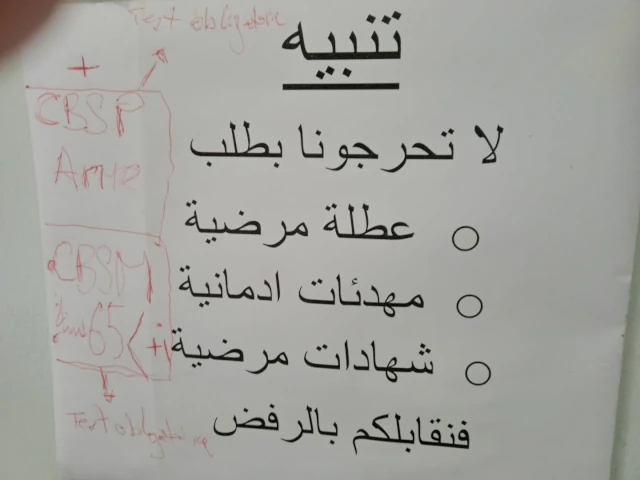 تنبيه
لا تحرجونا بطلب
عطلة مرضية
مهدئات ادمانية
شهادات مرضية
فنقابلكم بالرفض
Test obligatoire
+
CBSP
CBSM
65
Test